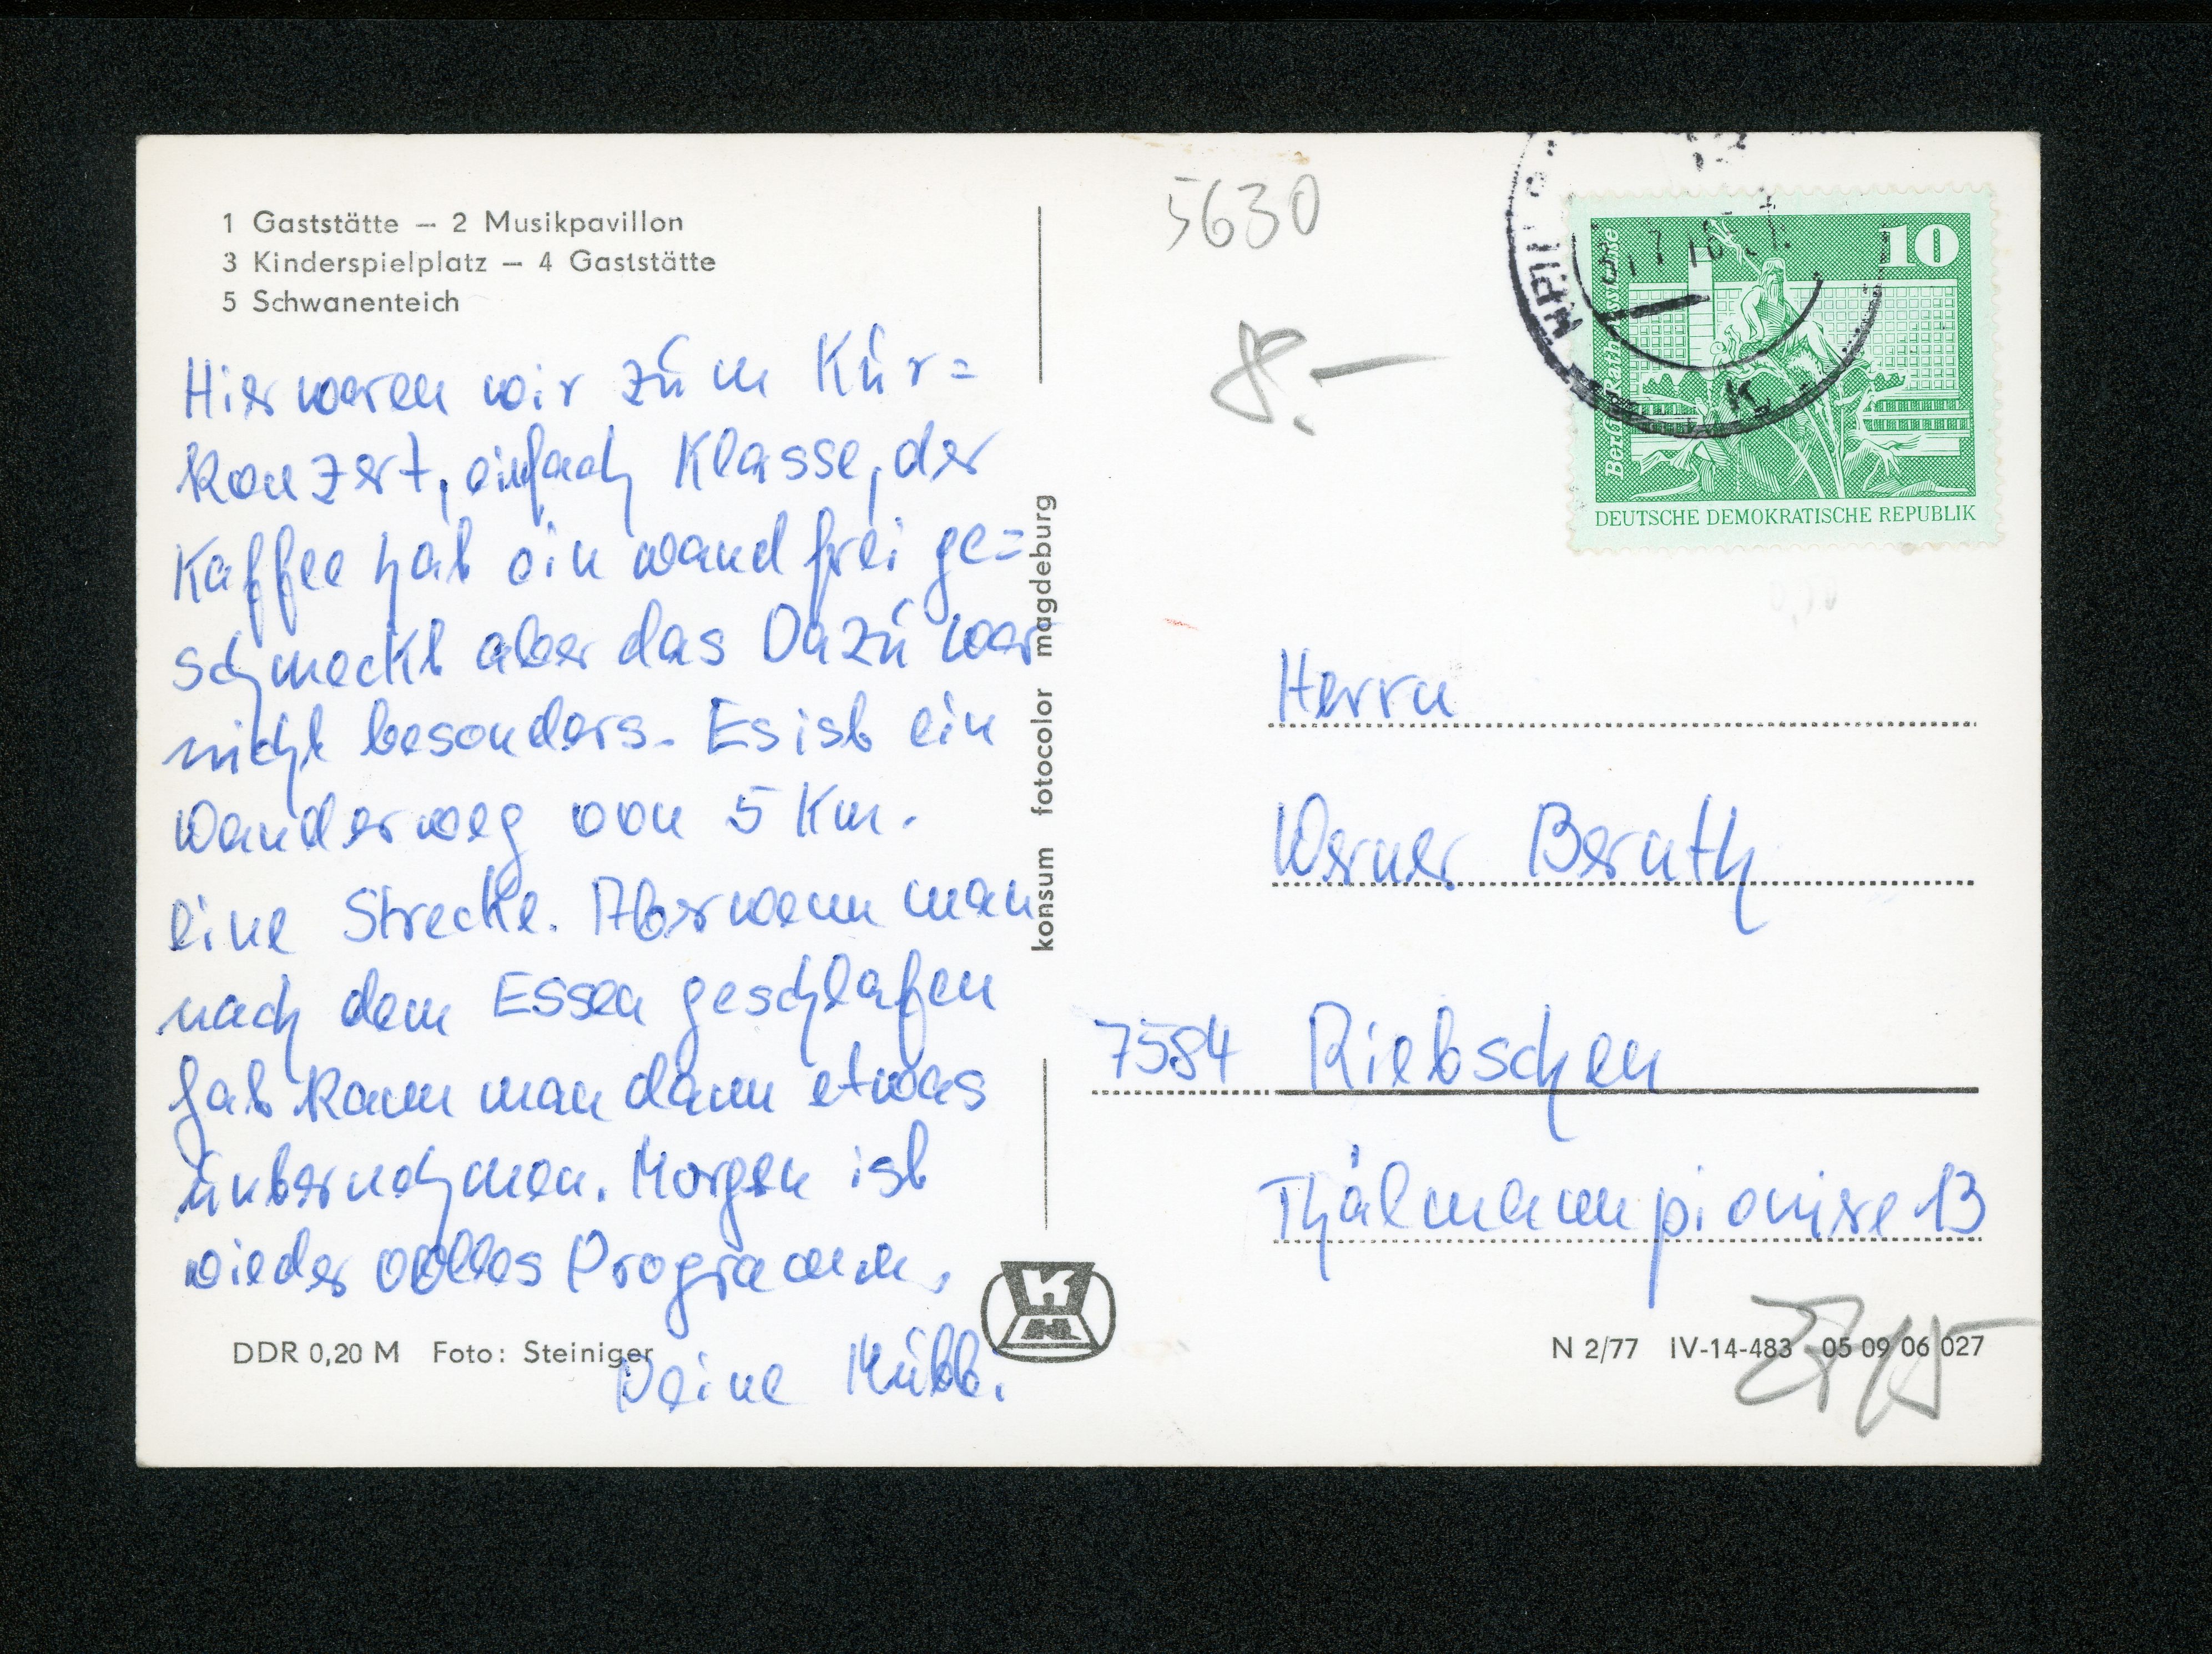 1 Gaststätte – 2 Musikpavillon
3 Kinderspielplatz – 4 Gaststätte
5 Schwanenteich
Hier waren wir zum Kur=
konzert, einfach Klasse, der
Kaffee hat einwandfrei ge=
schmeckt aber das Dazu war
nicht besonders. Es ist ein
Wanderweg von 5 Km.
eine Strecke. Aber wenn man
nach dem Essen geschlafen
hat kann man dann etwas
unternehmen. Morgen ist
wieder volles Programm.
Deine Mutti.
DDR 0,20 M Foto: Steiniger
konsum fotocolor magdeburg
5630
8.–
10
Berlin
DEUTSCHE DEMOKRATISCHE REPUBLIK
Herrn
Werner Beruth
7584 Rietschen
Thälmannpioniere 13
N 2/77 IV-14-483 05 09 06 027